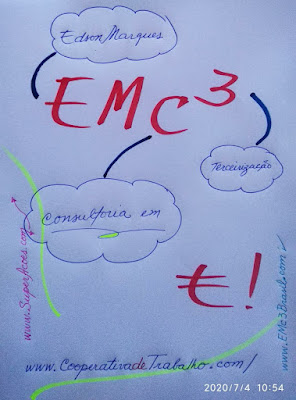 Edson Marques
EMC³
Terceirização
Consultoria em
€!
www.Superficoes.com
www.EMC3Brasil.com/
www.CooperativadeTrabalho.com/
2020/7/4 10:54